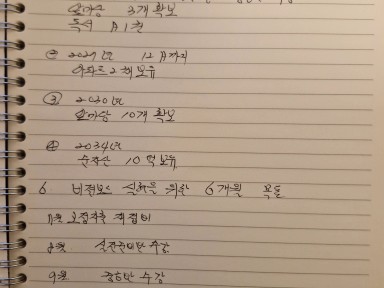 3개 확보
독서 월 1권
② 2027년 12월까지
아파트 2채 보유
③ 2030년
10개 확보
④ 2034년
순자산 10억 보유
6 비전보드 실현을 위한 6개월 목표
8월 실전준비반 수강
9월 중급반 수강